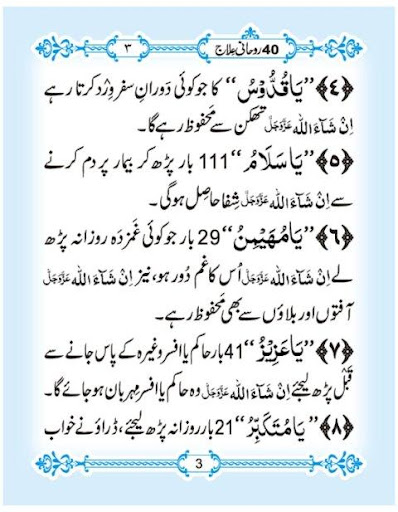 40 روحانی علاج ۳
﴿٤﴾ ”یَا قُدُّوْسُ“ کا جو کوئی دَورانِ سفر وِرْد کرتا رہے
اِنْ شَآءَ اللہ عَزَّوَجَلَّ تھکن سے محفوظ رہے گا۔
﴿٥﴾ ”یَا سَلَامُ“ 111 بار پڑھ کر بیمار پر دم کرنے
سے اِنْ شَآءَ اللہ عَزَّوَجَلَّ شِفا حاصِل ہوگی۔
﴿٦﴾ ”یَا مُھَیْمِنُ“ 29 بار جو کوئی غمزدَہ روزانہ پڑھ
لے اِنْ شَآءَ اللہ عَزَّوَجَلَّ اُس کا غم دُور ہو، نیز اِنْ شَآءَ اللہ عَزَّوَجَلَّ
آفتوں اور بلاؤں سے بھی محفوظ رہے۔
﴿٧﴾ ”یَا عَزِیْزُ“ 41 بار حاکم یا افسر وغیرہ کے پاس جانے سے
قَبْل پڑھ لیجئے اِنْ شَآءَ اللہ عَزَّوَجَلَّ وہ حاکم یا افسر مہربان ہو جائے گا۔
﴿٨﴾ ”یَا مُتَکَبِّرُ“ 21 بار روزانہ پڑھ لیجئے، ڈراؤنے خواب
3